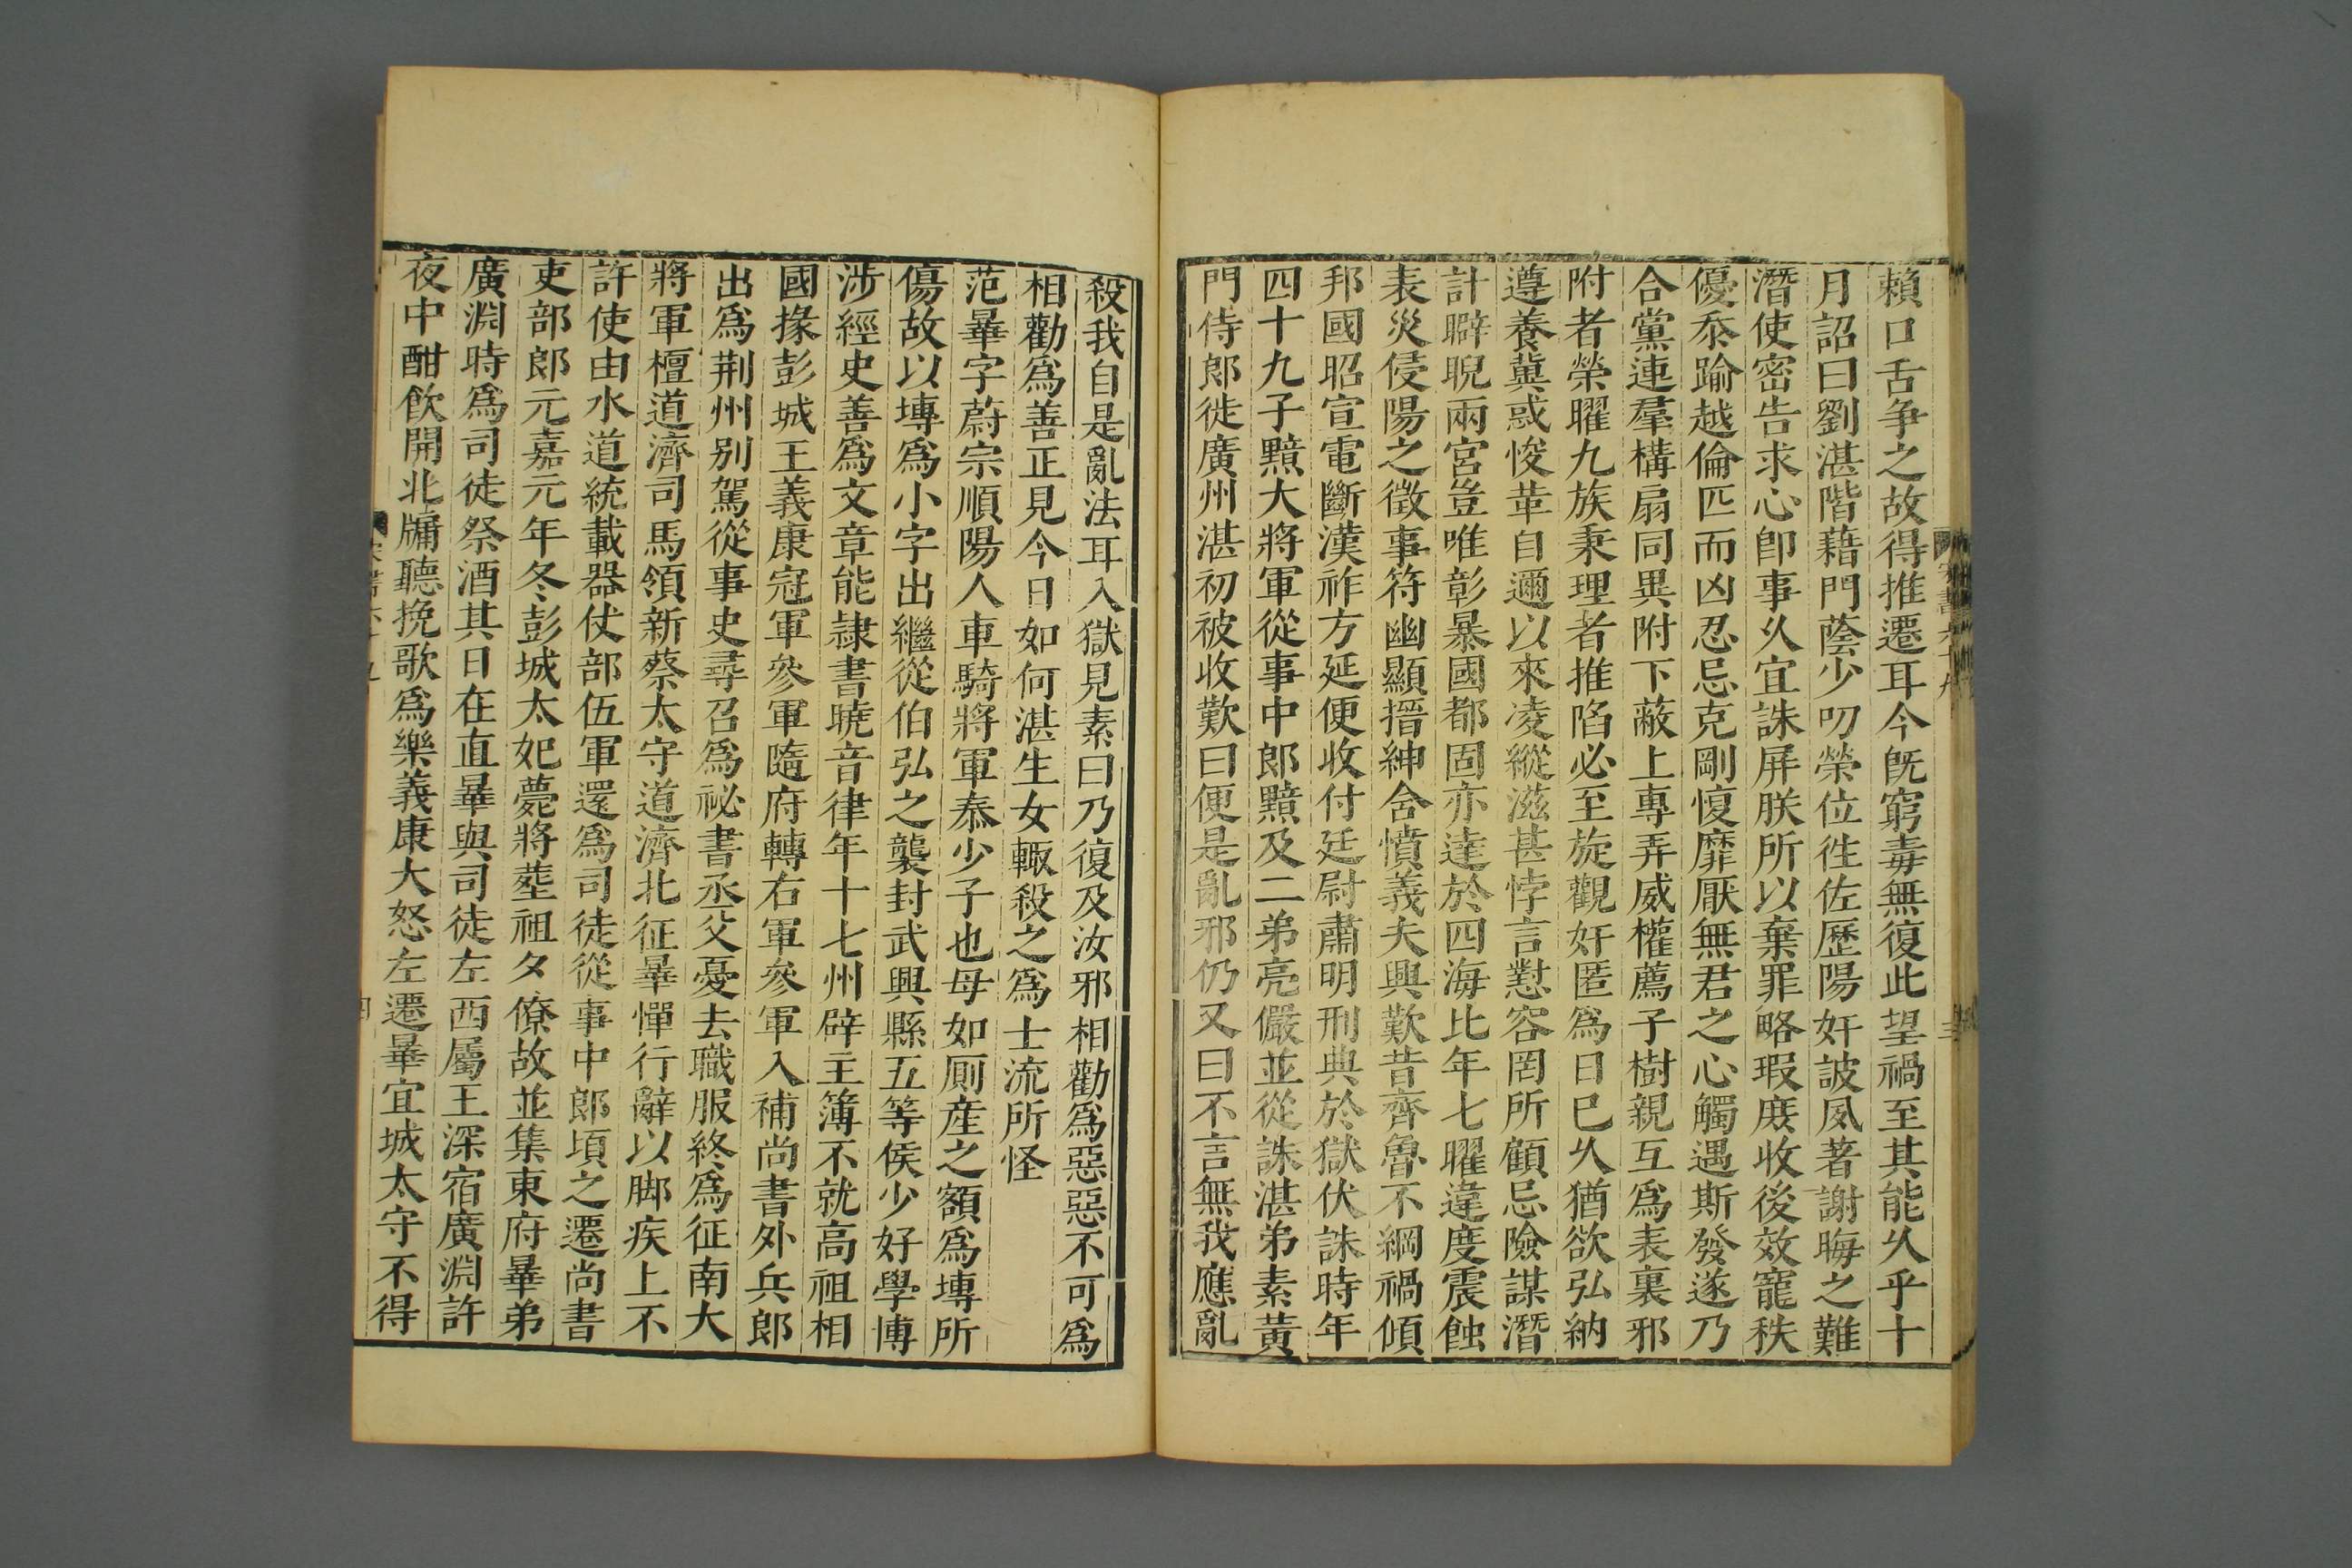 賴口舌争之故得推遷耳今旣窮毒無復此望禍至其能乆乎十
月詔曰劉湛階藉門蔭少叨榮位徃佐歷陽奸詖夙著謝晦之難
潛使密告求心卽事乆宜誅屏朕所以棄罪略瑕庻收後效寵秩
優忝踰越倫匹而凶忍忌克剛愎靡厭無君之心觸遇斯發遂乃
合黨連羣構扇同異附下蔽上專弄威權薦子樹親互爲表裏邪
附者榮曜九族秉理者推陷必至旋觀奸匿爲日巳乆猶欲弘納
遵養冀或悛革自邇以來凌縱滋甚悖言懟容罔所顧忌險謀潛
計睥睨兩宮豈唯彰暴國都固亦達於四海比年七曜違度震蝕
表災侵陽之徵事符幽顯搢紳含憤義夫興歎昔齊魯不綱禍傾
邦國昭宣電斷漢祚方延便收付廷尉肅明刑典於獄伏誅時年
四十九子黯大將軍從事中郎黯及二弟亮儼並從誅湛弟素黃
門侍郎徙廣州湛初被收歎曰便是亂邪仍又曰不言無我應亂
殺我自是亂法耳入獄見素曰乃復及汝邪相勸爲惡惡不可爲
相勸爲善正見今日如何湛生女輙殺之爲士流所怪
范曅字蔚宗順陽人車騎將軍泰少子也母如厠産之額爲塼所
傷故以塼爲小字出繼從伯弘之襲封武興縣五等侯少好學博
涉經史善爲文章能隷書曉音律年十七州辟主簿不就高祖相
國掾彭城王義康冠軍參軍隨府轉右軍參軍入補尚書外兵郎
出爲荆州别駕從事史尋召爲祕書丞父憂去職服終爲征南大
將軍檀道濟司馬領新蔡太守道濟北征曅憚行辭以脚疾上不
許使由水道統載器仗部伍軍還爲司徒從事中郎頃之遷尚書
吏部郎元嘉元年冬彭城太妃薨將葬祖夕僚故並集東府曅弟
廣淵時爲司徒祭酒其日在直曅與司徒左西屬王深宿廣淵許
夜中酣飲開北牖聽挽歌爲樂義康大怒左遷曅宜城太守不得